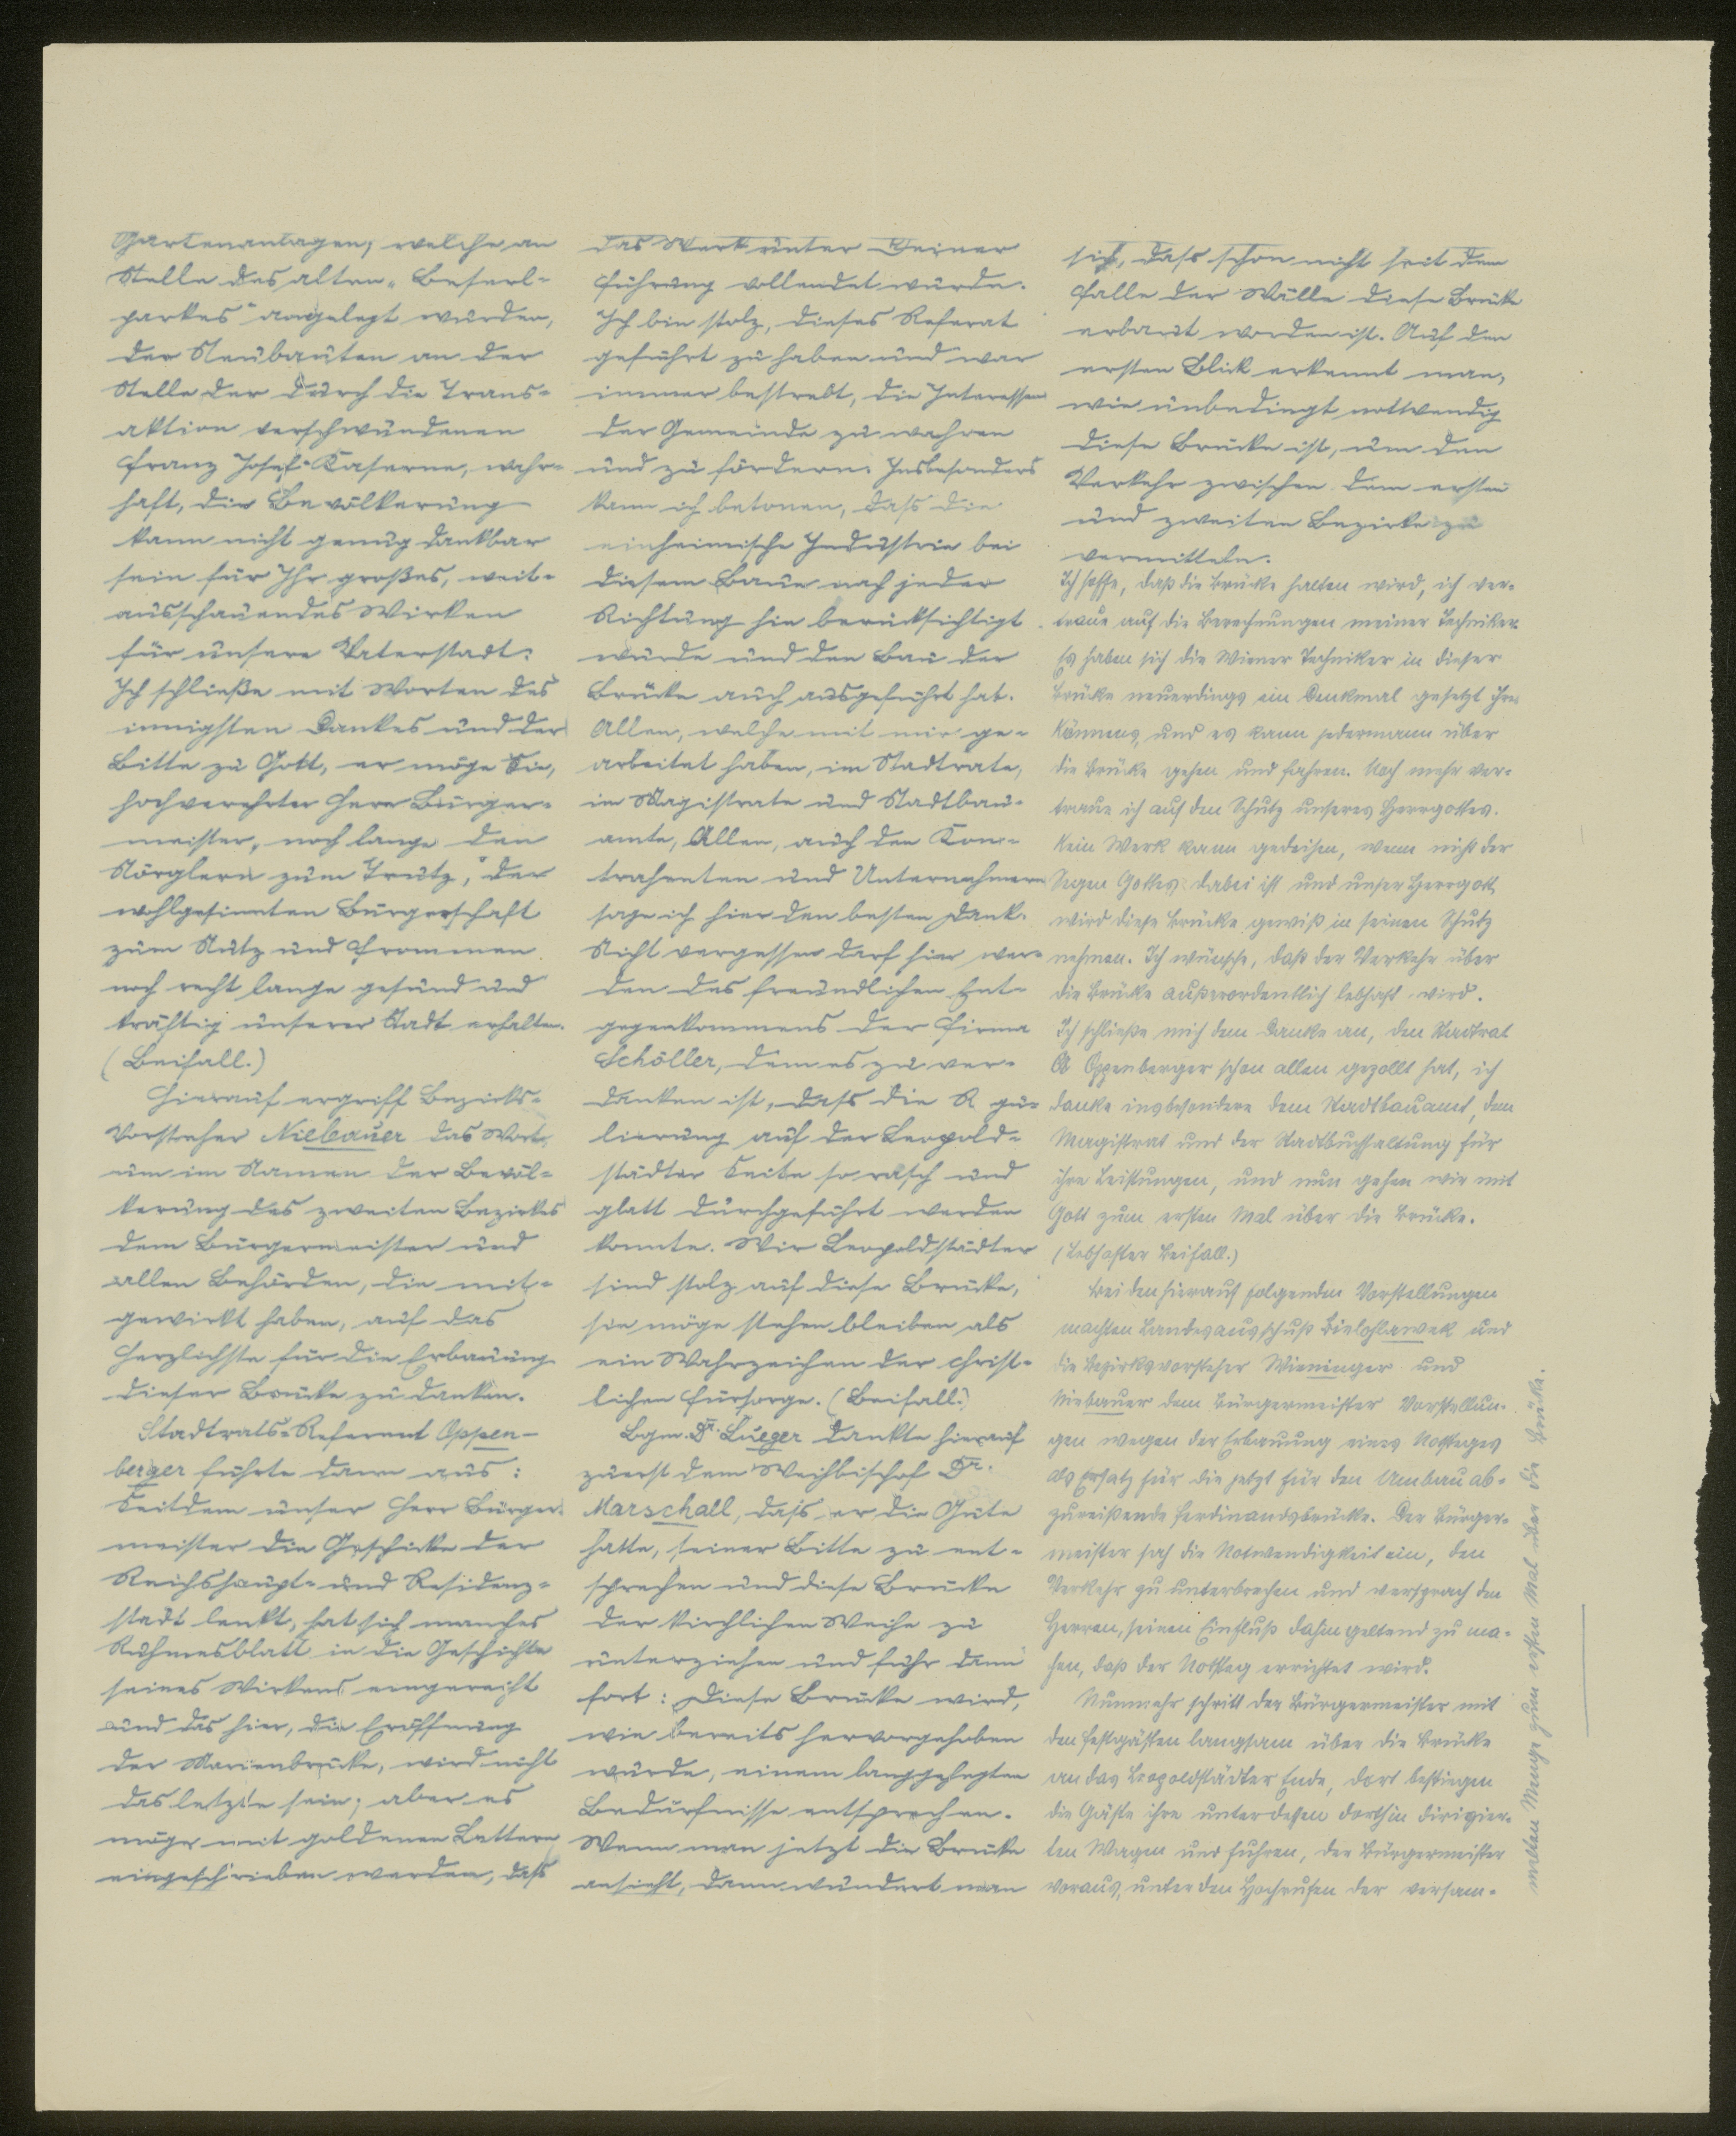 Gartenanlagen, welche an
Stelle des alten „Beserl-
parkes" angelegt wurden,
der Neubauten an der
Stelle der durch die Trans-
aktion verschwundenen
Franz Josef-Kaserne, wahr-
haft, die Bevölkerung
kann nicht genug dankbar
sein für Ihr großes, weit-
ausschauendes Wirken
für unsere Vaterstadt.
Ich schließe mit Worten des
innigsten Dankes und der
Bitte zu Gott, er möge Sie,
hochverehrter Herr Bürger-
meister, noch lange den
Nörglern zum Trutz, der
wohlgesinnten Bürgerschaft
zum Nutz und Frommen
noch recht lange gesund und
kräftig unserer Stadt erhalten.
(Beifall.)
Hierauf ergriff Bezirks-
Vorsteher Niebauer das Wort,
um im Namen der Bevöl-
kerung des zweiten Bezirkes
dem Bürgermeister und
allen Behörden, die mit-
gewirkt haben, auf das
Herzlichste für die Erbauung
dieser Brücke zu danken.
Stadtrats-Referent Oppen-
berger führte dann aus:
Seitdem unser Herr Bürger-
meister die Geschicke der
Reichshaupt- und Residenz-
stadt lenkt, hat sich manches
Ruhmesblatt in die Geschichte
seines Wirkens eingereiht
und das hier, die Eröffnung
der Marienbrücke, wird nicht
das letzte sein; aber es
möge mit goldenen Lettern
eingeschrieben werden, dass
das Werk unter Deiner
Führung vollendet wurde.
Ich bin stolz, dieses Referat
geführt zu haben und war
immer bestrebt, die Interessen
der Gemeinde zu wahren
und zu fördern. Insbesonders
kann ich betonen, dass die
einheimische Industrie bei
diesem Baue nach jeder
Richtung hin berücksichtigt
wurde und den Bau der
Brücke auch ausgeführt hat.
Allen, welche mit mir ge-
arbeitet haben, im Stadtrate,
im Magistrate und Stadtbau-
amte, Allen, auch den Kon-
trahenten und Unternehmern
sage ich hier den besten Dank.
Nicht vergessen darf hier wer-
den des freundlichen Ent-
gegenkommens der Firma
Schöller, dem es zu ver-
danken ist, dass die Regu-
lierung auf der Leopold-
städter Seite so rasch und
glatt durchgeführt werden
konnte. Wir Leopoldstädter
sind stolz auf diese Brücke,
sie möge stehen bleiben als
ein Wahrzeichen der christ-
lichen Fürsorge. (Beifall.)
Bgm. Dr. Lueger dankte hierauf
zuerst dem Weihbischof Dr.
Marschall, dass er die Güte
hatte, seiner Bitte zu ent-
sprechen und diese Brücke
der kirchlichen Weihe zu
unterziehen und fuhr dann
fort: Diese Brücke wird,
wie bereits hervorgehoben
wurde, einem langgehegten
Bedürfnisse entsprechen.
Wenn man jetzt die Brücke
ansieht, dann wundert man
sich, dass schon nicht seit dem
Falle der Wälle diese Brücke
erbaut worden ist. Auf den
ersten Blick erkennt man,
wie unbedingt nottwendig
diese Brücke ist, um den
Verkehr zwischen dem ersten
und zweiten Bezirke zu
vermitteln.
Ich hoffe, daß die Brücke halten wird, ich ver-
traue auf die Berechnungen meiner Techniker.
Es haben sich die Wiener Techniker in dieser
Brücke neuerdings ein Denkmal gesetzt ihres
Könnens, und es kann jedermann über
die Brücke gehen und fahren. Noch mehr ver-
traue ich auf den Schutz unseres Herrgottes.
Kein Werk kann gedeihen, wenn nicht der
Segen Gottes dabei ist und unser Herrgott
wird diese Brücke gewiß in seinen Schutz
nehmen. Ich wünsche, daß der Verkehr über
die Brücke außerordentlich lebhaft wird.
Ich schließe mich dem Danke an, den Stadtrat
Oppenberger schon allen gezollt hat, ich
danke insbesondere dem Stadtbauamt, dem
Magistrat und der Stadtbuchhaltung für
ihre Leistungen, und nun gehen wir mit
Gott zum ersten Mal über die Brücke.
(Lebhafter Beifall.)
Bei den hierauf folgenden Vorstellungen
machten Landesausschuß Bielohlawek und
die Bezirksvorsteher Wieninger und
Niebauer dem Bürgermeister Vorstellun-
gen wegen der Erbauung eines Notsteges
als Ersatz für die jetzt für den Umbau ab-
zureißende Ferdinandsbrücke. Der Bürger-
meister sah die Notwendigkeit ein, den
Verkehr zu unterbrechen und versprach den
Herren, seinen Einfluß dahin geltend zu ma-
chen, daß der Notsteg errichtet wird.
Nunmehr schritt der Bürgermeister mit
den Festgästen langsam über die Brücke
an das Leopoldstädter Ende, dort bestiegen
die Gäste ihre unterdessen dorthin dirigier-
ten Wagen und fuhren, der Bürgermeister
voraus, unter den Hochrufen der versam-
melten Menge zum ersten Mal über die Brücke.